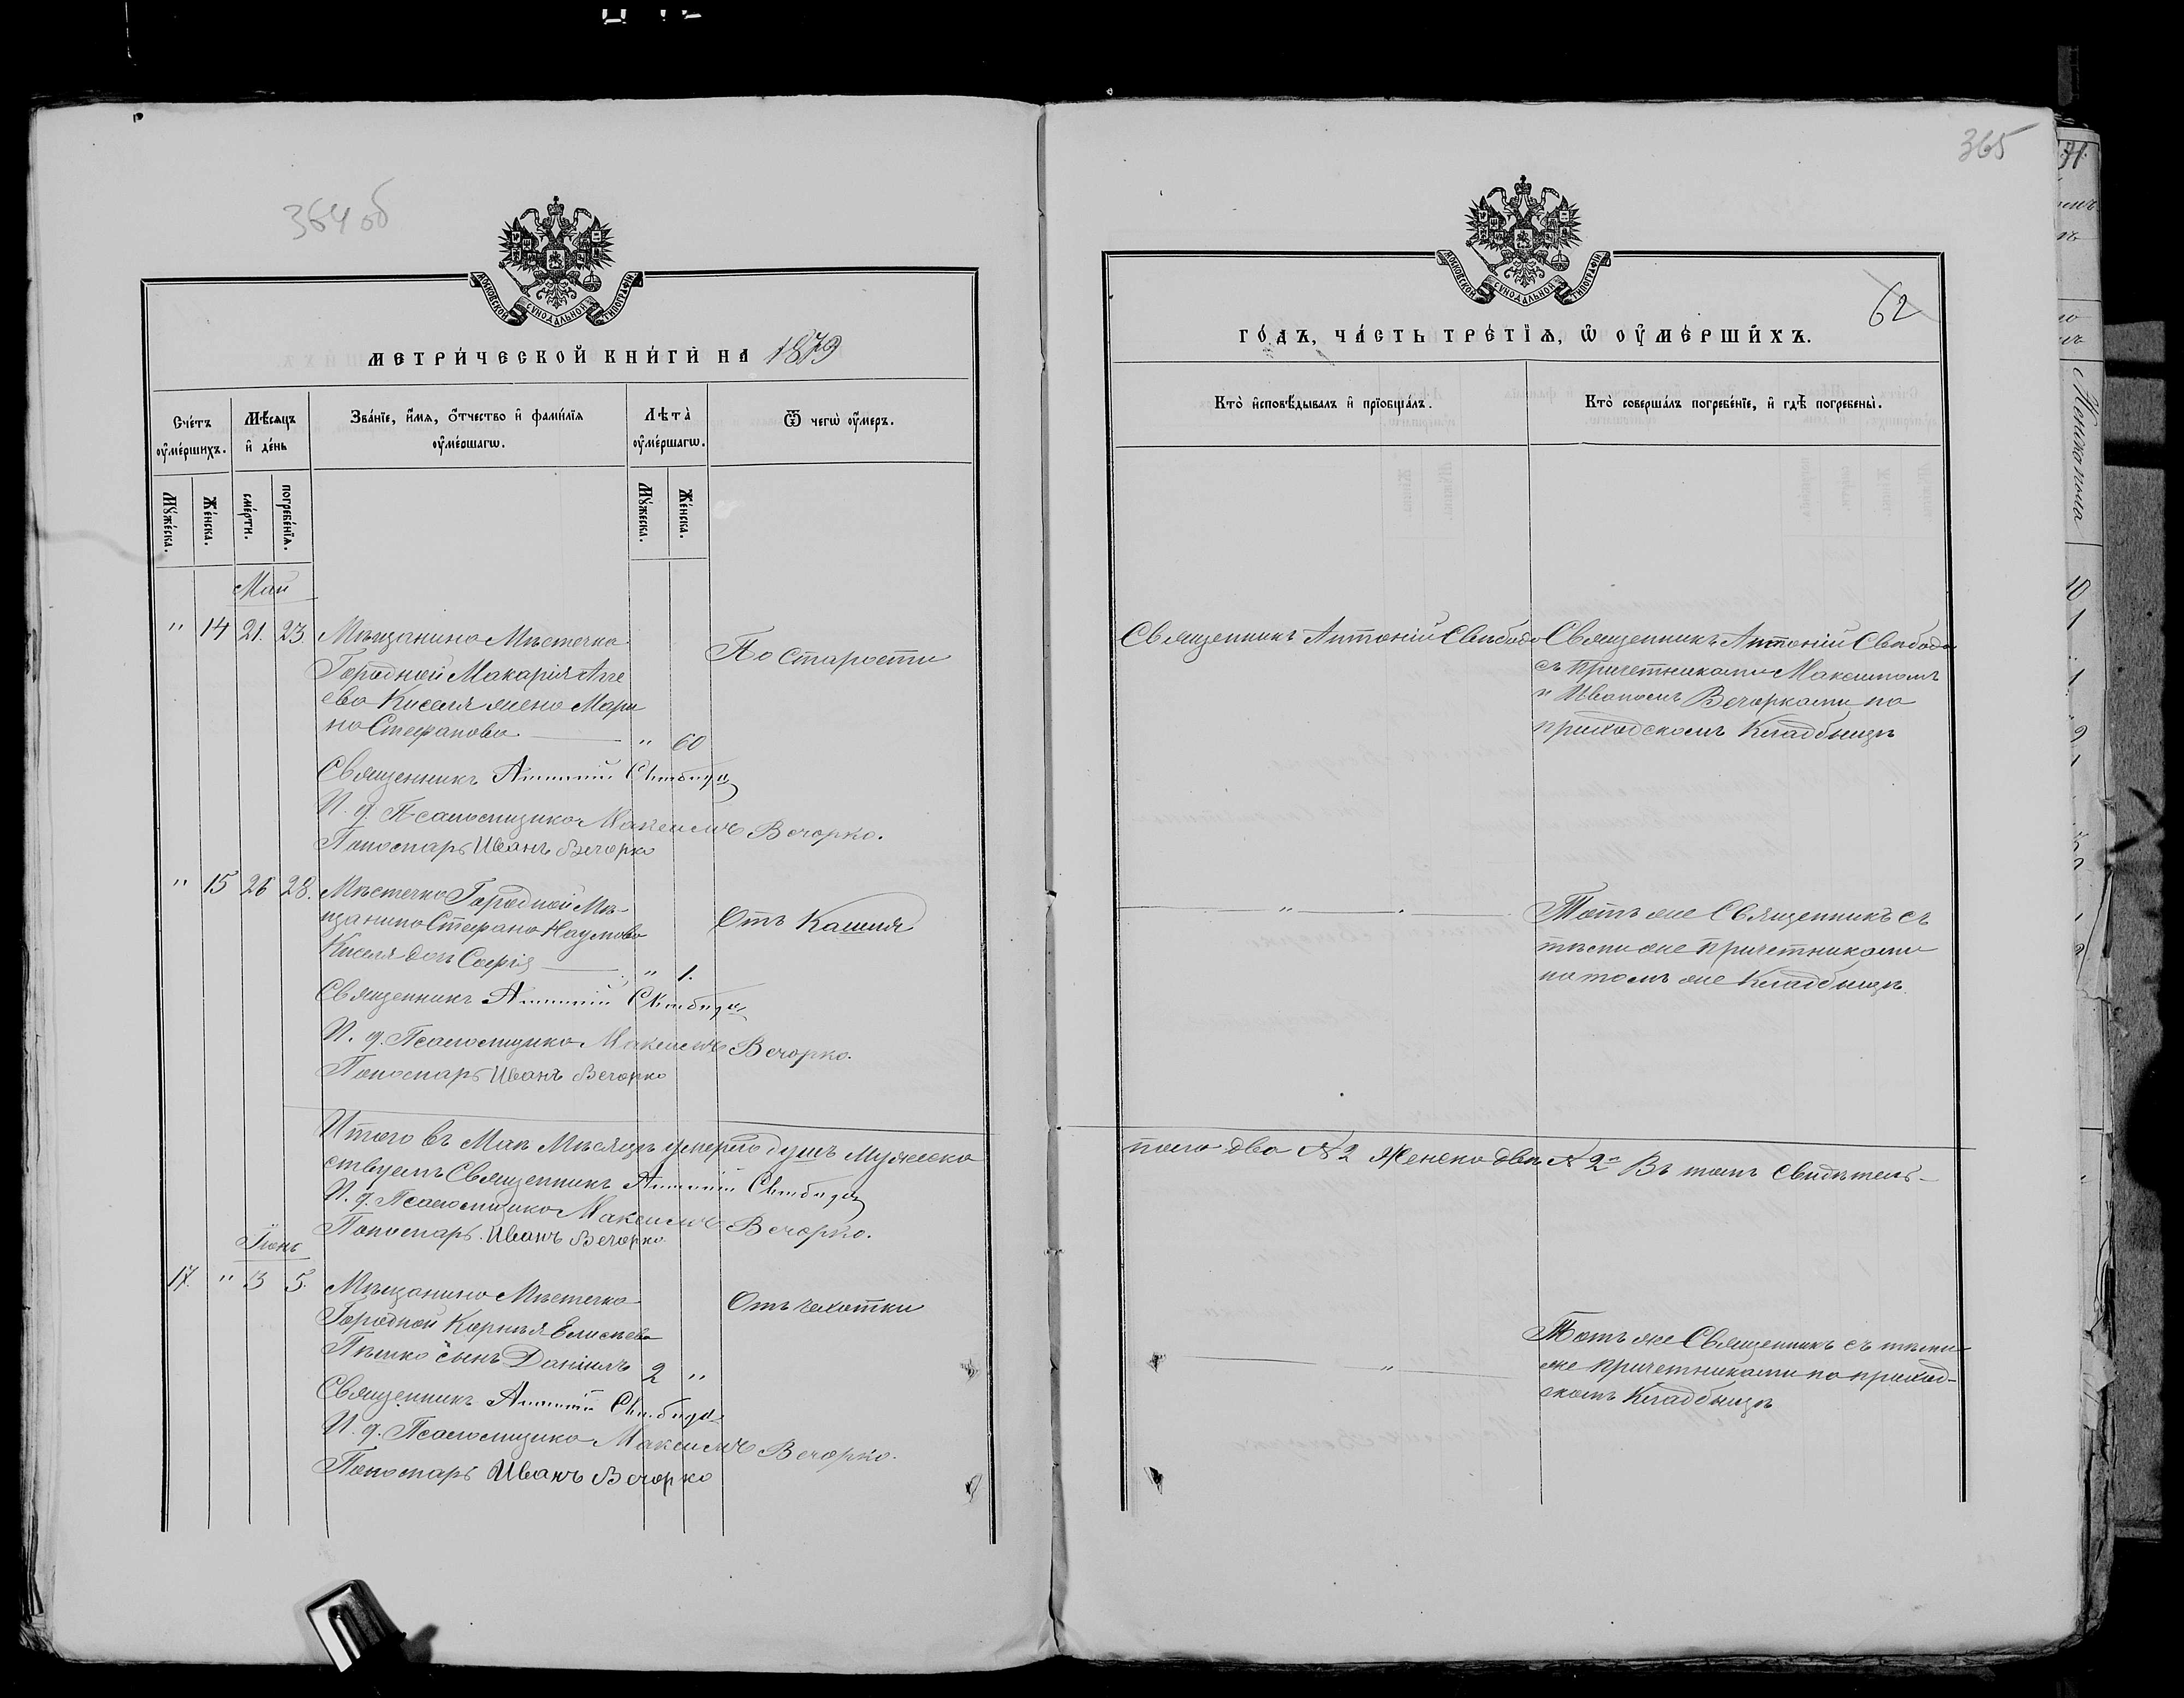 364 об
МОСКОВСКОЙ СѴНОДАЛЬНОЙ ТИПОГРАФІИ
МЕТРИ́ЧЕСКОЙ КНИ́ГИ НА 1879
Сче́тъ ᲂу҆ме́ршихъ.
Мѣ́сѧцъ и҆ де́нь
Зва́нїе, и҆́мѧ, ѻ҆́тчество и҆ фами́лїѧ ᲂу҆ме́ршагѡ.
Лѣ́та ᲂу҆ме́ршагѡ.
Ѿ чегѡ̀ ᲂу҆́меръ.
Мꙋ́жеска.
Же́нска.
сме́рти.
погребе́нїѧ.
Мꙋ́жеска.
Же́нска.
Май
" 14 21. 23. Мѣщанина Мѣстечка
Городной Макарія Агге
ева Киселя жена Мари
на Стефанова — " 60
По Старости
Священникъ Антоній Свобода
И. д. Псаломщика Максимъ Вечорко.
Пономарь Иванъ Вечорко
" 15 26 28. Мѣстечка Городной Мѣ-
щанина Стефана Наумова
Киселя дочь Софія — " 1.
Отъ Кашля
Священникъ Антоній Свобода
И. д. Псаломщика Максимъ Вечорко.
Пономарь Иванъ Вечорко
Итого въ Маѣ Мѣсяцѣ умерло душъ Мужеска
ствуетъ Священникъ Антоній Свобода
И. д. Псаломщика Максимъ Вечорко.
Пономарь Иванъ Вечорко
Іюнь
17. " 3 5. Мѣщанина Мѣстечка
Городной Корнѣя Елисѣева
сынъ Даніилъ 2 "
Отъ чахотки
Священникъ Антоній Свобода
И. д. Псаломщика Максимъ Вечорко.
Пономарь Иванъ Вечорко
365
62
МОСКОВСКОЙ СѴНОДАЛЬНОЙ ТИПОГРАФІИ
ГО́ДЪ, ЧА́СТЬ ТРЕ́ТЇѦ, Ѡ҆ ОУ҆МЕ́РШИХЪ.
Кто̀ и҆сповѣ́дывалъ и҆ прїѡбща́лъ.
Кто̀ соверша́лъ погребе́нїе, и҆ гдѣ̀ погребены̀.
Священникъ Антоній Свобода
Священникъ Антоній Свобода
съ Причетниками Максимомъ
и Иваномъ Вечорками на
приходскомъ Кладбищѣ
— " — " —
Тотъ же Священникъ съ
тѣми же Причетниками
на томъ же Кладбищѣ.
пола два № 2 Женска двѣ № 2 Въ томъ Свидѣтель-
— " —
Тотъ же Священникъ съ тѣми
же Причетниками на приход-
скомъ Кладбищѣ
Женскаго